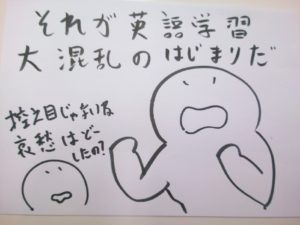 それが英語学習
大混乱のはじまりだ
控え目じゃまいな
哀愁はどー
したの?